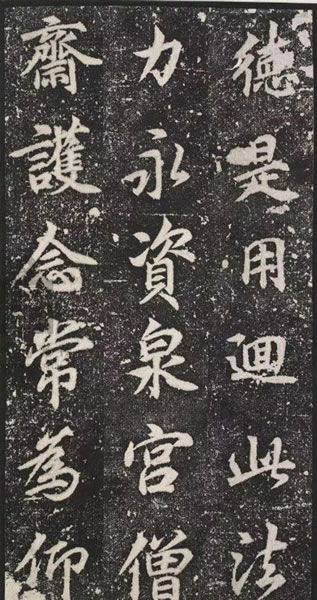 德是用迴此法
力永資泉宮僧
齋護念常為仰